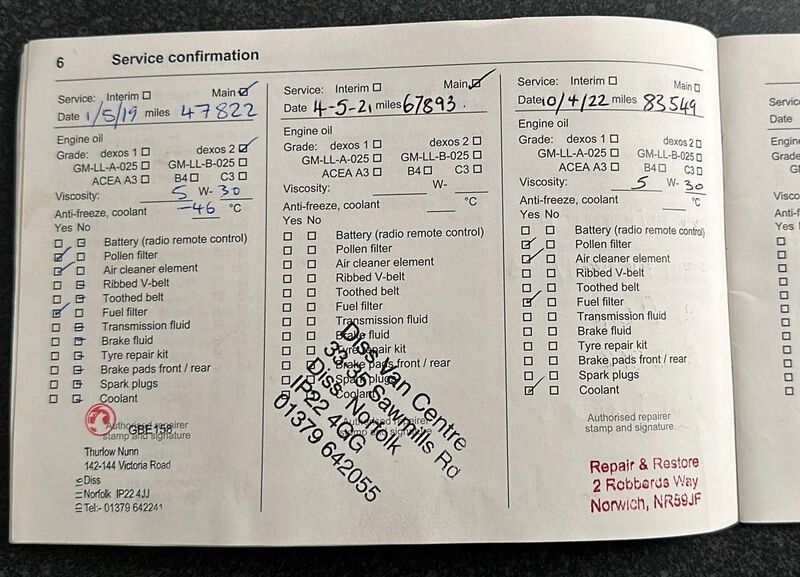 6 Service confirmation
Service: Interim Main
Date 1/5/19 miles 47822
Engine oil
Grade: dexos 1 dexos 2
GM-LL-A-025 GM-LL-B-025
ACEA A3 B4 C3
Viscosity: 5 W- 30
Anti-freeze, coolant -46 °C
Yes No
Battery (radio remote control)
Pollen filter
Air cleaner element
Ribbed V-belt
Toothed belt
Fuel filter
Transmission fluid
Brake fluid
Tyre repair kit
Brake pads front / rear
Spark plugs
Coolant
Authorised repairer
stamp and signature
GBE158
Thurlow Nunn
142-144 Victoria Road
Diss
Norfolk IP22 4JJ
Tel:- 01379 642241
Service: Interim Main
Date 4-5-21 miles 67893.
Engine oil
Grade: dexos 1 dexos 2
GM-LL-A-025 GM-LL-B-025
ACEA A3 B4 C3
Viscosity: W-
Anti-freeze, coolant °C
Yes No
Battery (radio remote control)
Pollen filter
Air cleaner element
Ribbed V-belt
Toothed belt
Fuel filter
Transmission fluid
Brake fluid
Tyre repair kit
Brake pads front / rear
Spark plugs
Coolant
Authorised repairer
stamp and signature
Diss Van Centre
33-35 Sawmills Rd
Diss, Norfolk
IP22 4GG
01379 642055
Service: Interim Main
Date 10/4/22 miles 83549
Engine oil
Grade: dexos 1 dexos 2
GM-LL-A-025 GM-LL-B-025
ACEA A3 B4 C3
Viscosity: 5 W- 30
Anti-freeze, coolant °C
Yes No
Battery (radio remote control)
Pollen filter
Air cleaner element
Ribbed V-belt
Toothed belt
Fuel filter
Transmission fluid
Brake fluid
Tyre repair kit
Brake pads front / rear
Spark plugs
Coolant
Authorised repairer
stamp and signature
Repair & Restore
2 Robberds Way
Norwich, NR59JF
Date
Yes